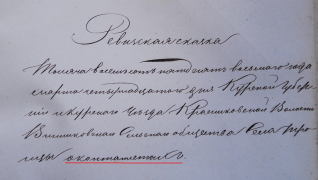 Ревизская сказка
Тысяча восемьсот пятьдесят восьмого года
марта четырнадцатого дня Курской Губер
нии Курского Уезда Красниковской Волости
Вышнеовской Сельского общества Села Тро
ицы